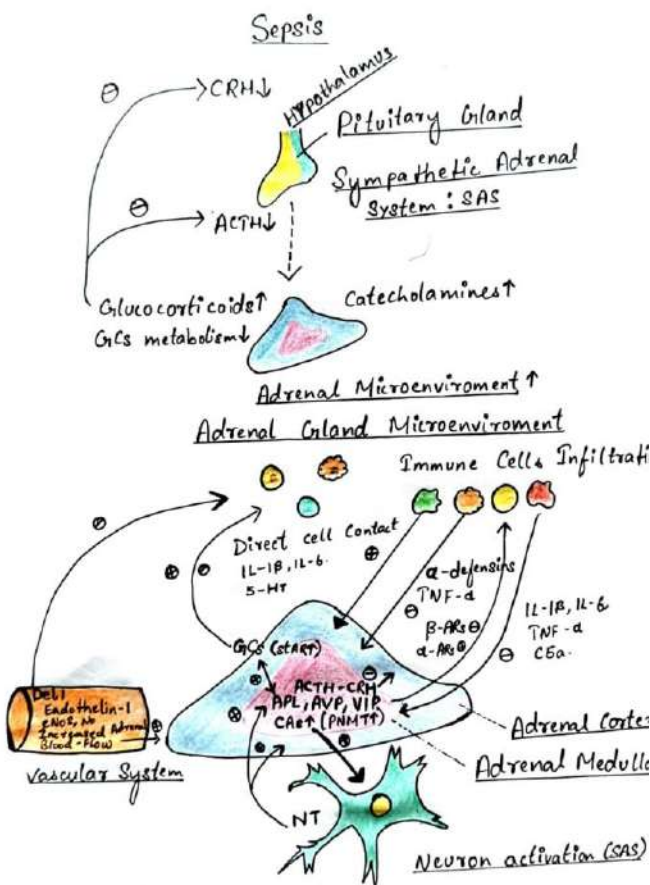 Sepsis
CRH↓
Hypothalamus
Pituitary Gland
Sympathetic Adrenal
System : SAS
ACTH↓
Glucocorticoids↑
GCs metabolism↓
Catecholamines↑
Adrenal Microenviroment ↑
Adrenal Gland Microenviroment
Immune Cells Infiltrati
Direct cell Contact
IL-1β, IL-6.
5-HT
α-defensins
TNF-α
β-ARs⊖
α-ARs⊕
IL-1β, IL-6
TNF-α
C5a.
GCs (StAR↑)
ACTH-CRH
APL, AVP, VIP
CAs↑ (PNMT↑)
Del1
Endothelin-1
eNOS, No
Increased Adrenal
Blood-Flow
Vascular System
Adrenal Corte
Adrenal Medulla
NT
Neuron activation (SAS)